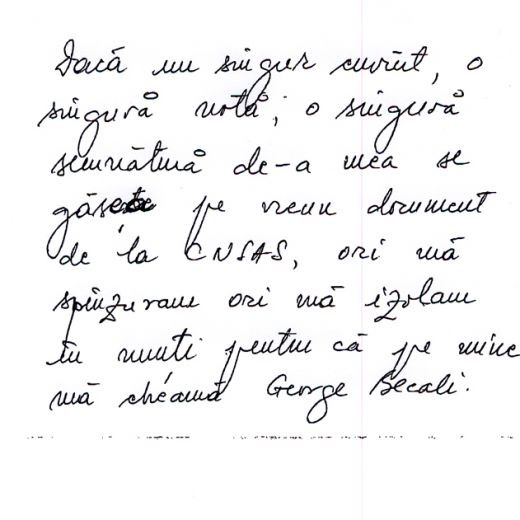 Dacă un singur cuvînt, o
singură notă, o singură
semnătură de-a mea se
găsește pe vreun document
de la CNSAS, ori mă
spînzuram ori mă izolam
în munti pentru că pe mine
mă cheamă George Becali.